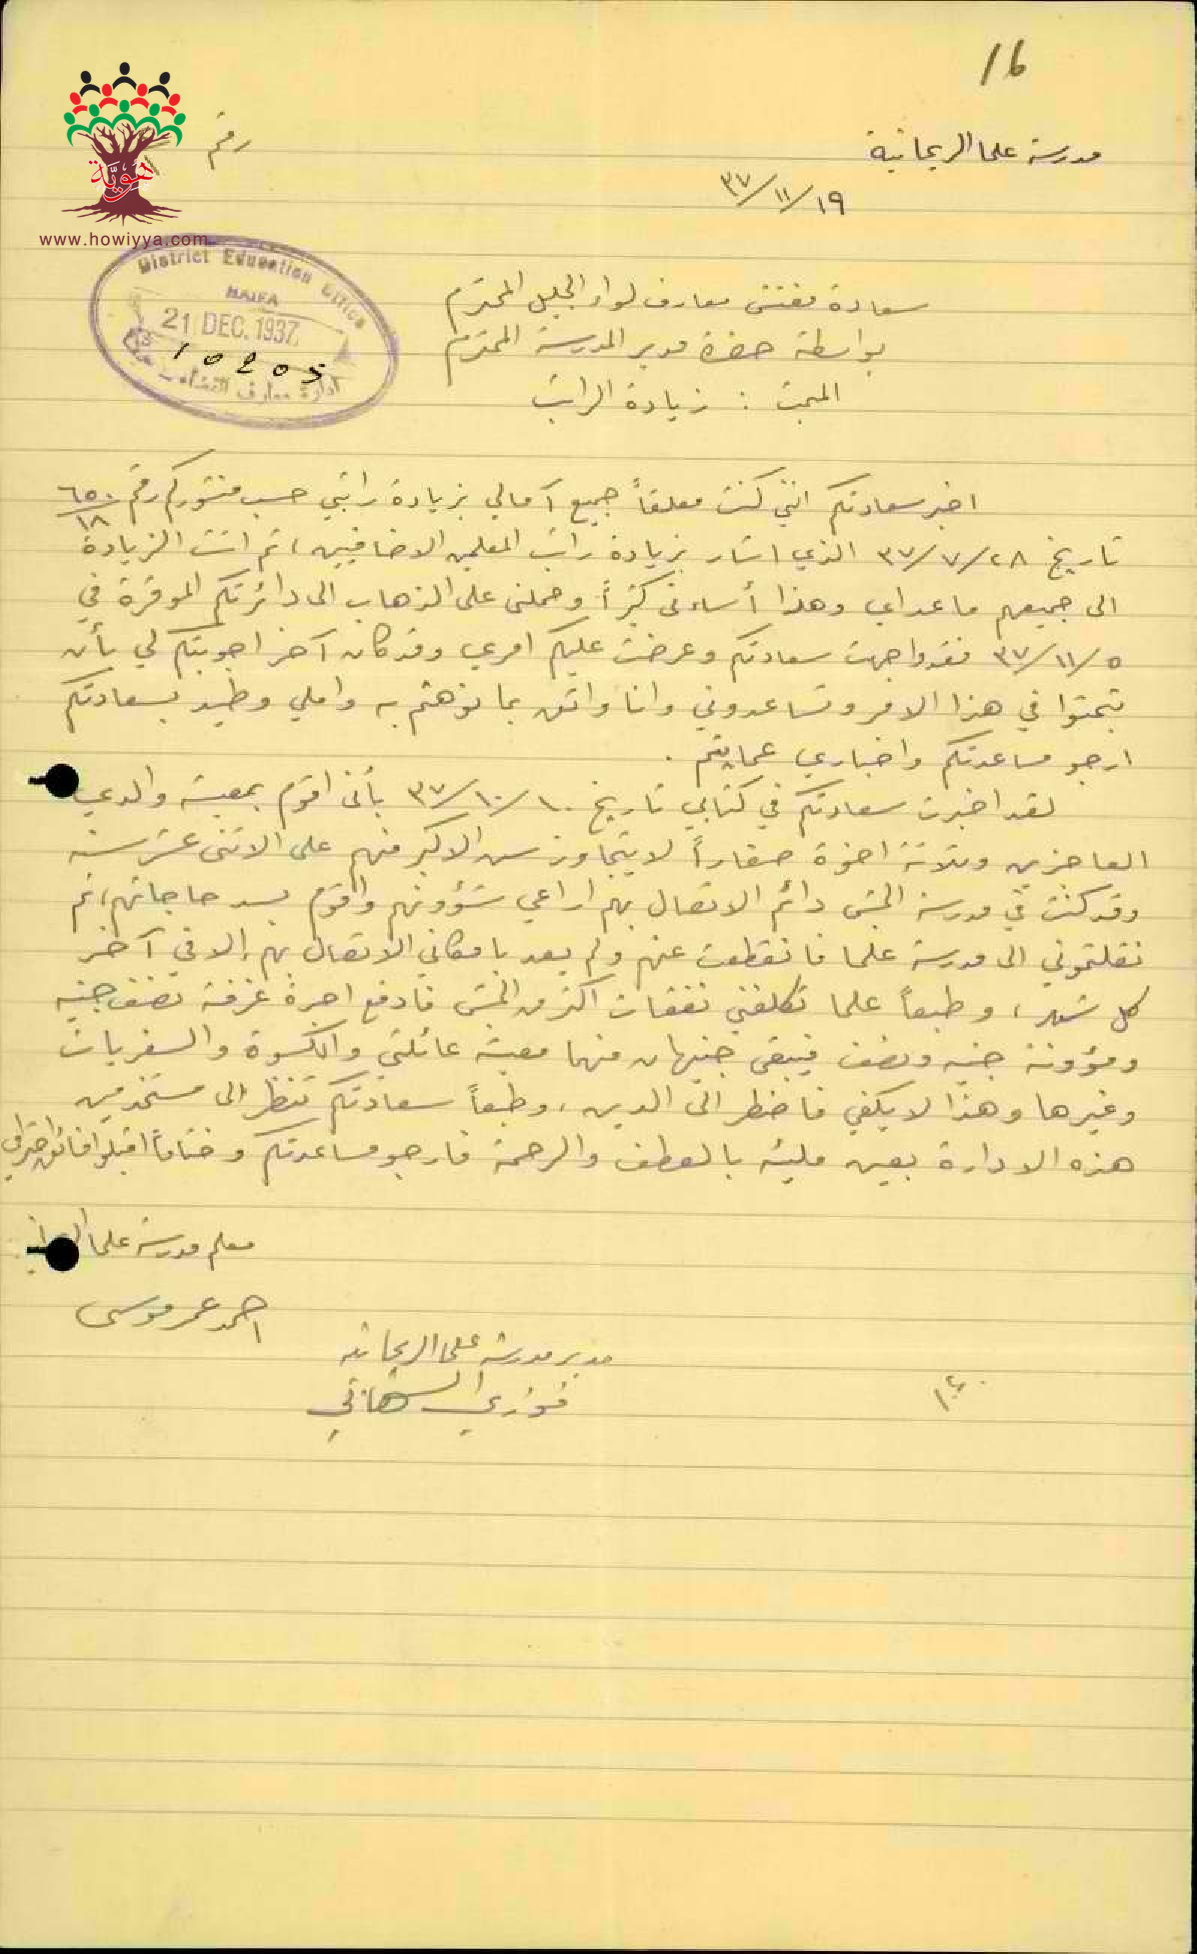 16
رقم
مدرسة علما الريحانية
١٩/١١/٣٧
هوية
www.howiyya.com
District Education Office
HAIFA
21 DEC. 1937
ادارة معارف
سعادة مفتش معارف لواء الجليل المحترم
بواسطة حضرة مدير المدرسة المحترم
المبحث : زيادة الراتب
اخبر سعادتكم انني كنت معلقاً جميع آمالي بزيادة راتبي حسب منشوركم رقم ٦٥٠/١٨
تاريخ ٢٨/٧/٣٧ الذي اشار بزيادة راتب المعلمين الاضافيين، ثم اتت الزيادة
الى جميعهم ما عداي وهذا أساءني كثيراً وحملني على الذهاب الى دائرتكم الموقرة في
٥/١١/٣٧ فقد واجهت سعادتكم وعرضت عليكم امري وقد كان آخر اجوبتكم لي بأن
تبحثوا في هذا الامر وتساعدوني وانا واثق بما نوهتم به واملي وطيد بسعادتكم
ارجو مساعدتكم واخباري عما يتم .
لقد اخبرت سعادتكم في كتابي تاريخ ١٠/١٠/٣٧ بأني اقوم بمعيشة والدي
العاجزين وثلاثة اخوة صغاراً لا يتجاوز سن الاكبر منهم على الاثنى عشر سنة
وقد كنت في مدرسة الجش دائم الاتصال بهم اراعي شؤونهم واقوم بسد حاجاتهم، ثم
نقلتموني الى مدرسة علما فانقطعت عنهم ولم يعد بامكاني الاتصال بهم إلا في آخر
كل شهر، وطبعاً علما تكلفني نفقات اكثر من الجش فادفع اجرة غرفة نصف جنيه
ومؤونة جنيه ونصف فيبقى جنيهان منهما معيشة عائلتي والكسوة والسفريات
وغيرها وهذا لا يكفي فاضطر الى الدين، وطبعاً سعادتكم تنظر الى مستخدمين
هذه الادارة بعين مليئة بالعطف والرحمة فارجو مساعدتكم وختاماً اقبلوا فائق احترامي
معلم مدرسة علما
احمد عمر موسى
مدير مدرسة علما الريحانية
فوزي